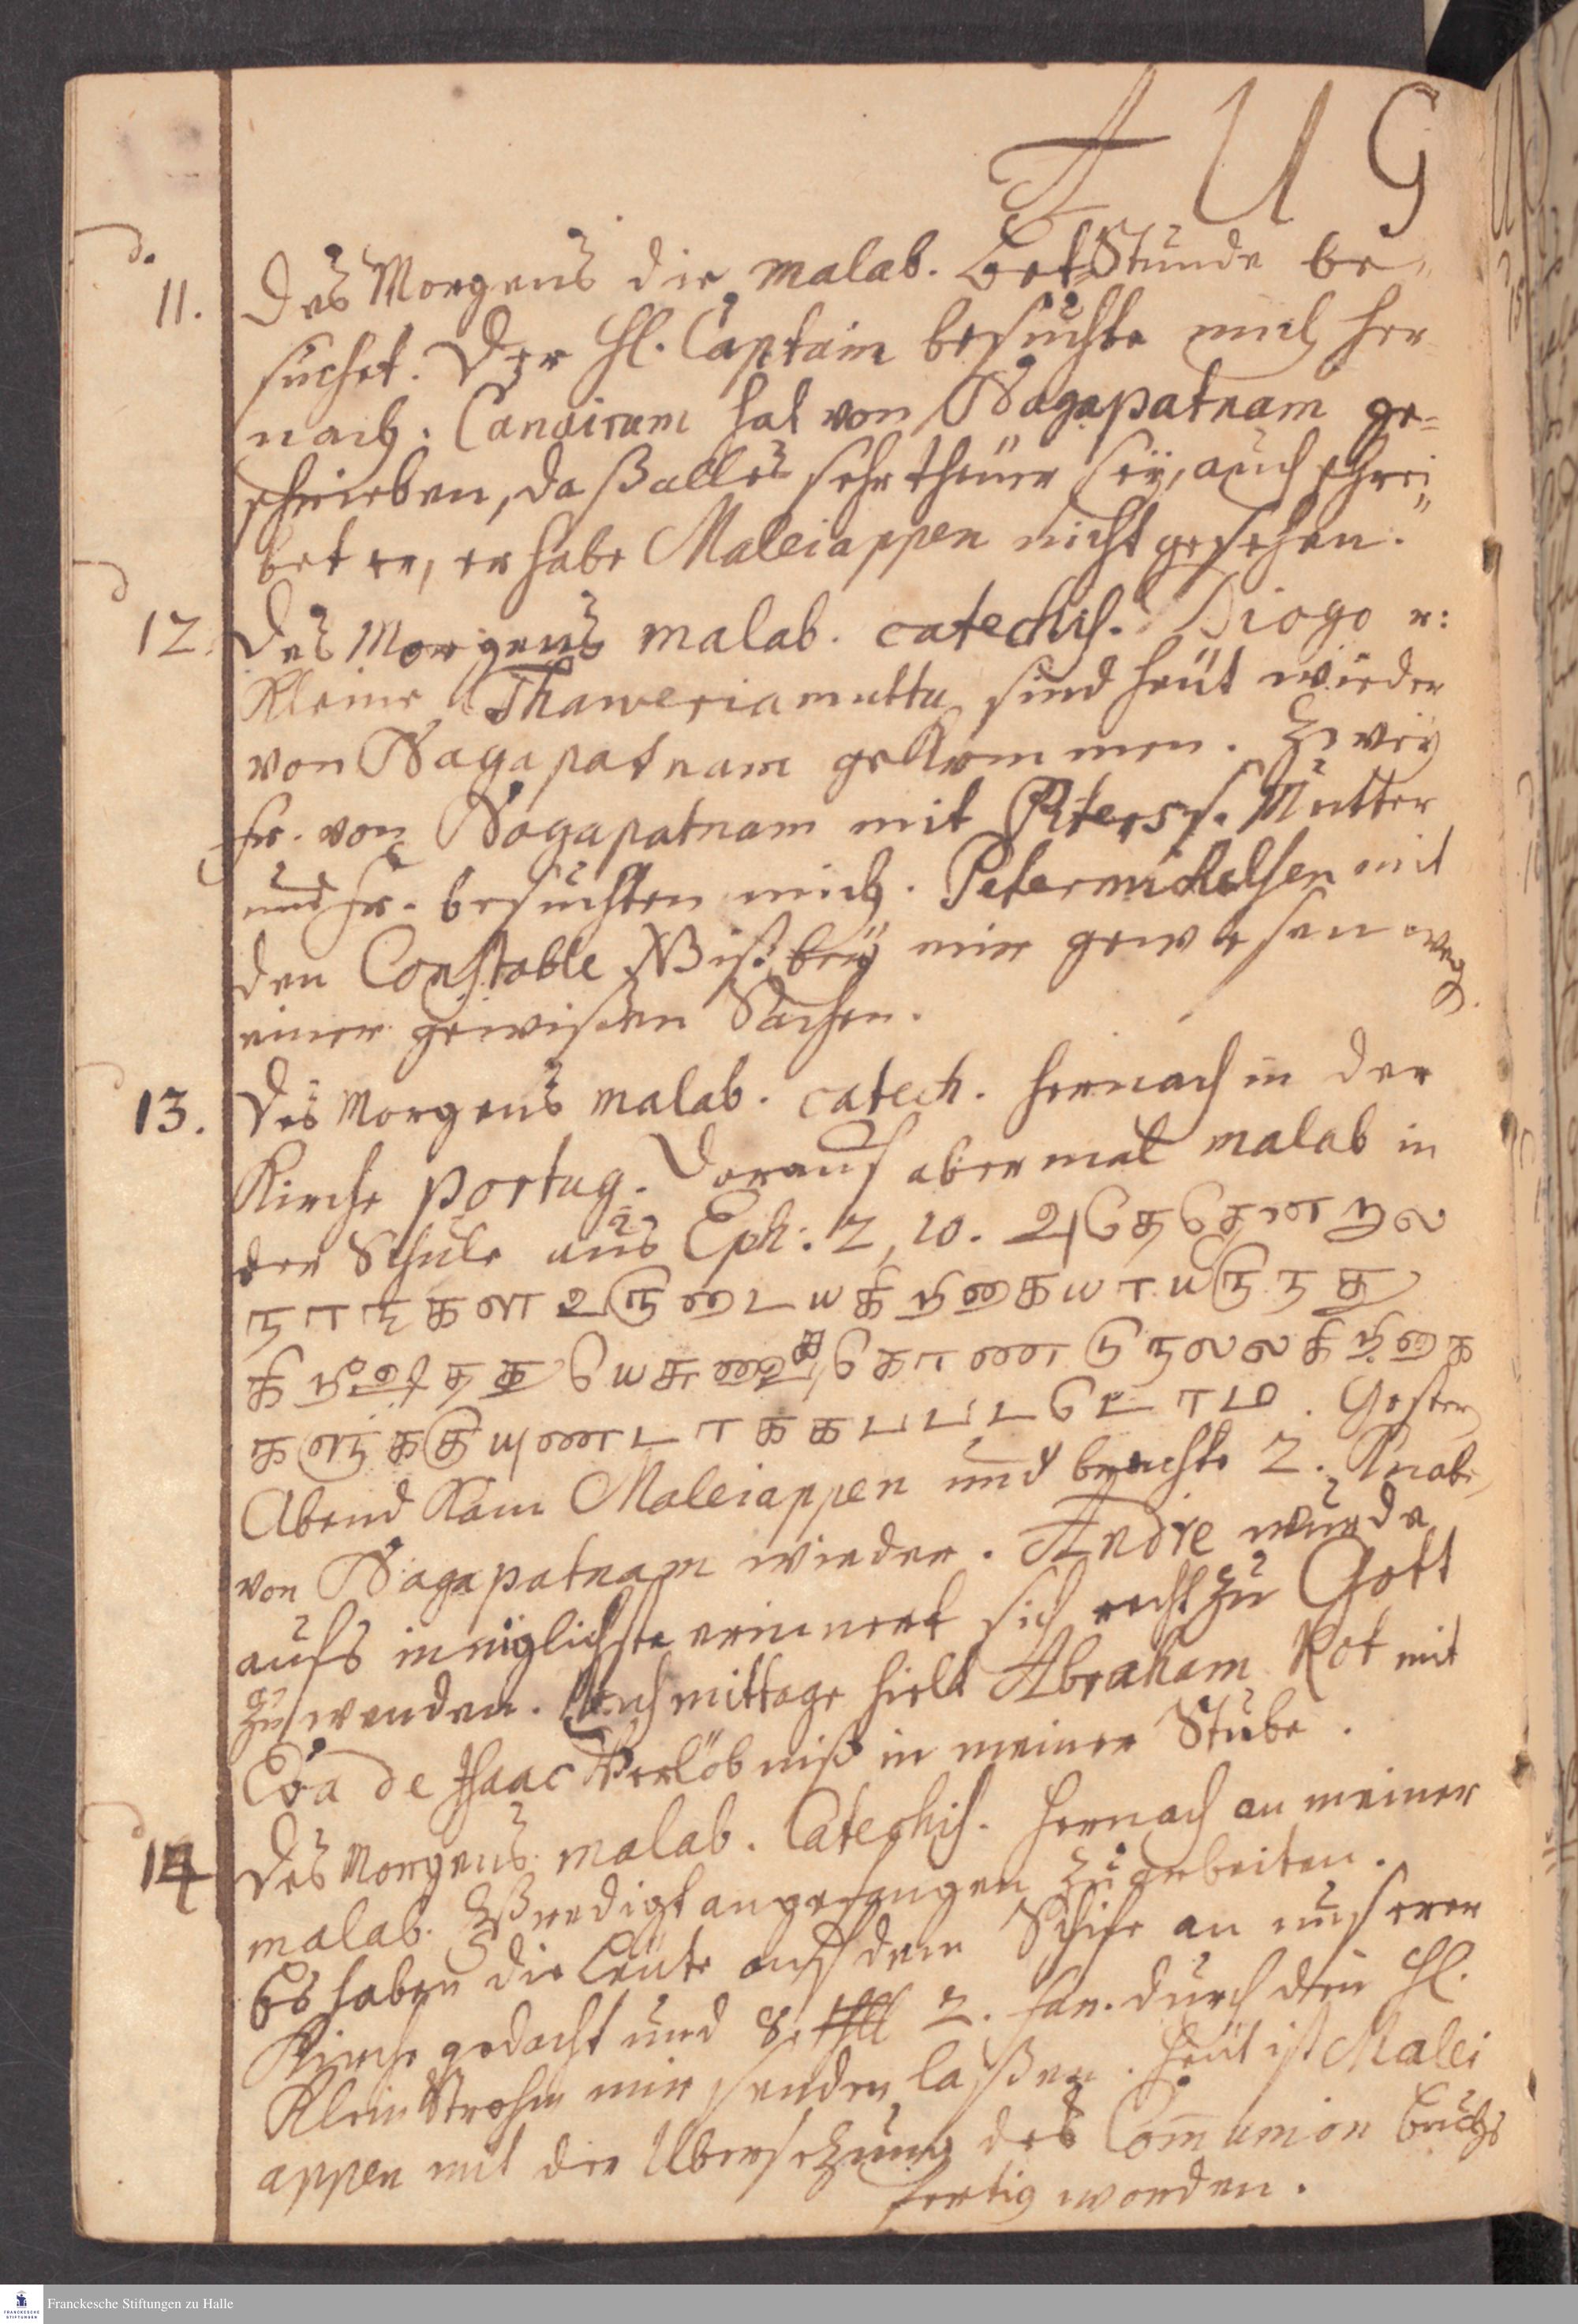 A U G
d.
11. Des Morgens die malab. BetStunde be-
suchet. Der Hl. Captain besuchte mich her
nach. Canairam hat von Nagapatnam ge=
schrieben, daß alles sehr theuer seÿ, auch schrei
bet er, er habe Maleiappen nicht gesehen.
d
12. Des Morgens malab. catechis. Diogo u:
Kleine Thaweriamuttu sind heüt wieder
von Nagapatnam gekommen. Zweÿ
Fr. von Nagapatnam mit Piters s. Mutter
und Fr. besuchten mich. Petermichelsen mit
den Constable Wiß beÿ mir gewesen weg.
einer gewißen Sachen.
d
13. Des Morgens malab. catech. hernach in der
Kirche portug. Darauf abermal malab in
der Schule aus Eph: 2, 10.
நாங்கள
. Gestern
Abend kam Maleiappen und brachte 2. Knabe
von Nagapatnam wieder. Andre wurde
aufs inniglichste erinnert sich recht zu Gott
zu wenden. Nachmittage hielt Abraham Kot mit
Eva de Isaac Verlöbniß in meiner Stube.
d
14 Des Morgens malab. Catechis. Hernach an meiner
malab. Predigt angefangen zu arbeiten.
Es haben die Leute auf dem Schife an unserer
Kirche gedacht und 8. 2. fan. durch den Hl.
Klein Strohm mir senden laßen. Heüt ist Malei
appen mit der Ubersetzung des Com̄union buchs
fertig worden.
Franckesche Stiftungen zu Halle